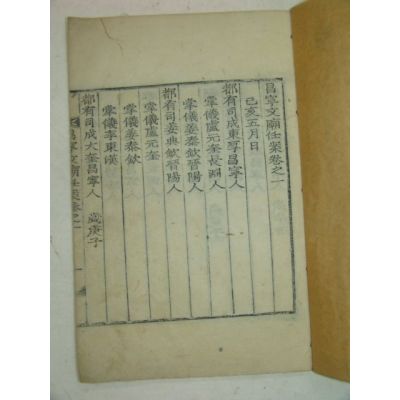 昌寧文廟任案卷之一
己亥五月日
都有司成東孚昌寧人
掌儀盧元奎長淵人
掌儀姜泰欽晉陽人
都有司姜典欽晉陽人
掌儀盧元奎
掌儀姜泰欽
掌儀李東漢
都有司成大奎昌寧人 歲庚子
昌寧文廟任案卷之一